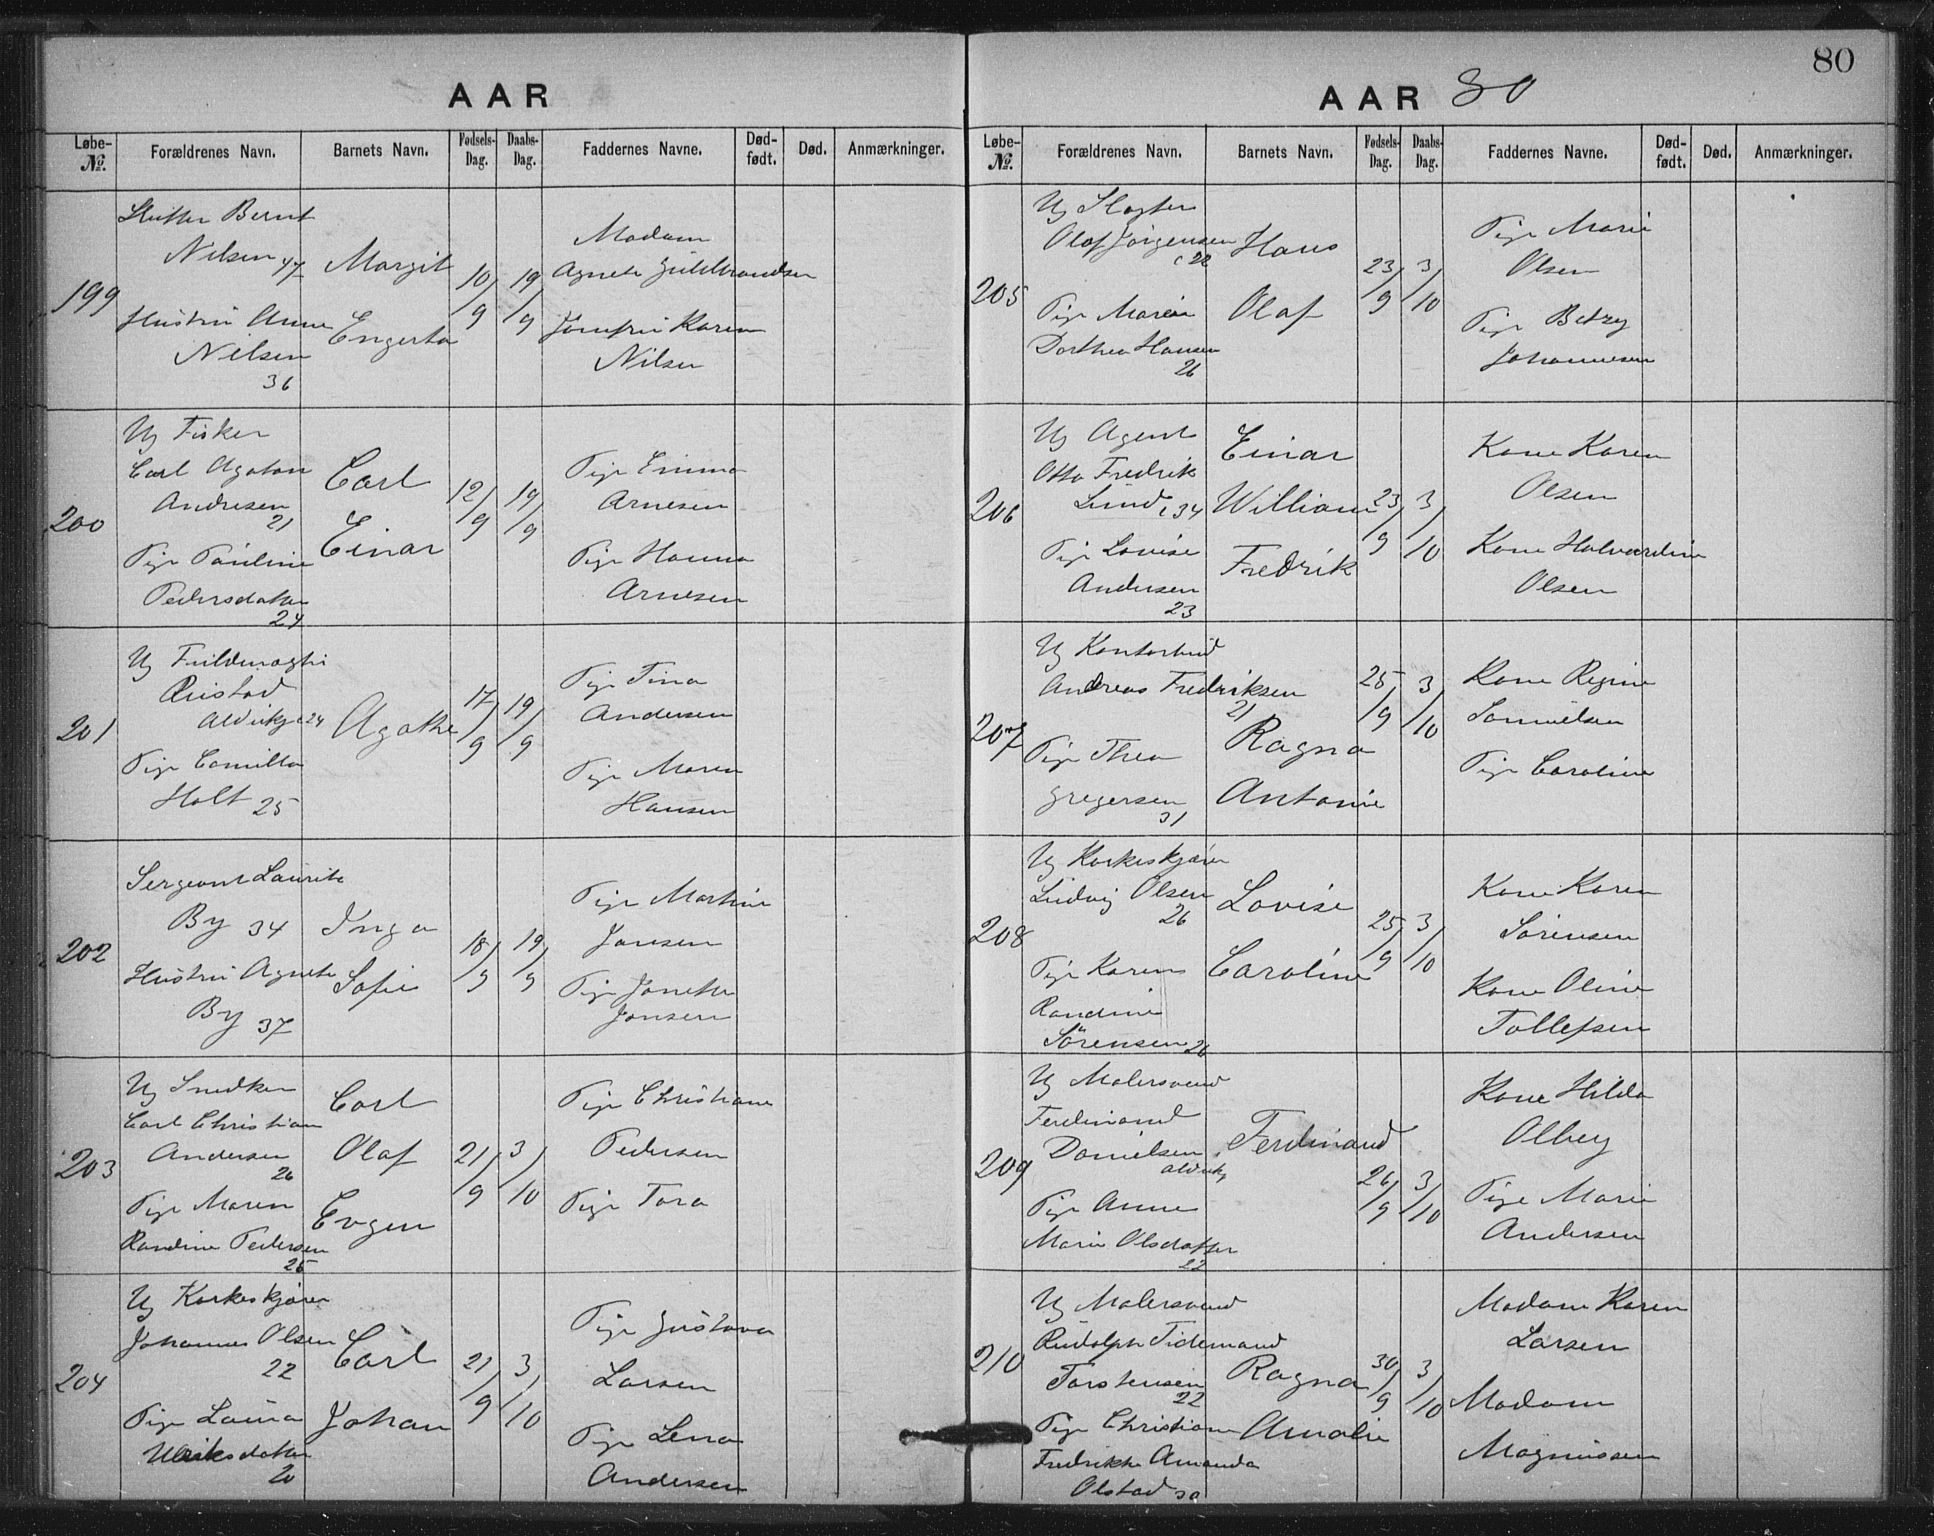 80
AAR
Løbe-№. Forældrenes Navn. Barnets Navn. Fødsels-Dag. Daabs-Dag. Faddernes Navne. Død-født. Død. Anmærkninger.
199
Bernt
Nilsen 47
Hustru Anne
Nilsen
36
Margit
Engerta
10/9
19/9
Madam
Agnete Guldbrandsen
Jomfru Karen
Nilsen
200
Ug Fisker
Carl Agaton
Andresen
21
Pige Pauline
Pedersdatter
24
Carl
Einar
12/9
19/9
Pige Emma
Arnesen
Pige Hanna
Arnesen
201
Ug Fuldmægti
Rustad
24
Pige Camilla
Holt 25
Agathe
17/9
19/9
Pige Tina
Andersen
Pige Maren
Hansen
202
Sergeant Laurits
By 34
Hustru Agnete
By 37
Inga
Sofie
18/9
19/9
Pige Martine
Jansen
Pige Janette
Jansen
203
Ug Snedker
Carl Christian
Andersen
26
Pige Maren
Randine Pedersen
25
Carl
Olaf
Evgen
21/9
3/10
Pige Christiane
Pedersen
Pige Tora
204
Ug Korkeskjærer
Johannes Olsen
22
Pige Laura
Ulriksdatter
20
Carl
Johan
21/9
3/10
Pige Gustava
Larsen
Pige Lena
Andersen
AAR 80
Løbe-№. Forældrenes Navn. Barnets Navn. Fødsels-Dag. Daabs-Dag. Faddernes Navne. Død-født. Død. Anmærkninger.
205
Ug Slagter
Olaf Jørgensen
c 22
Pige Maren
Dorthea Hansen
26
Hans
Olaf
23/9
3/10
Pige Marie
Olsen
Pige Betzy
Johannesen
206
Ug Agent
Otto Fredrik
Lund c 34
Pige Lovise
Andersen
23
Einar
William
Fredrik
23/9
3/10
Kone Karen
Olsen
Kone Halvardine
Olsen
207
Ug Kontorbud
Andreas Fredriksen
21
Pige Thea
Gregersen
31
Ragna
Antonie
25/9
3/10
Kone Regine
Samuelsen
Pige Caroline
208
Ug Korkeskjærer
Ludvig Olsen
26
Pige Karen
Randine
Sørensen 26
Lovise
Caroline
25/9
3/10
Kone Karen
Sørensen
Kone Oline
Tollefsen
209
Ug Malersvend
Ferdinand
Danielsen
Pige Anne
Marie Olsdatter
22
Ferdinand
26/9
3/10
Kone Hilda
Olbey
Pige Marie
Andersen
210
Ug Malersvend
Rudolph Tidemand
Torstensen
22
Pige Christiane
Fredrikke Amanda
Olstad 30
Ragna
Amalie
30/9
3/10
Madam Karen
Larsen
Madam
Magnussen